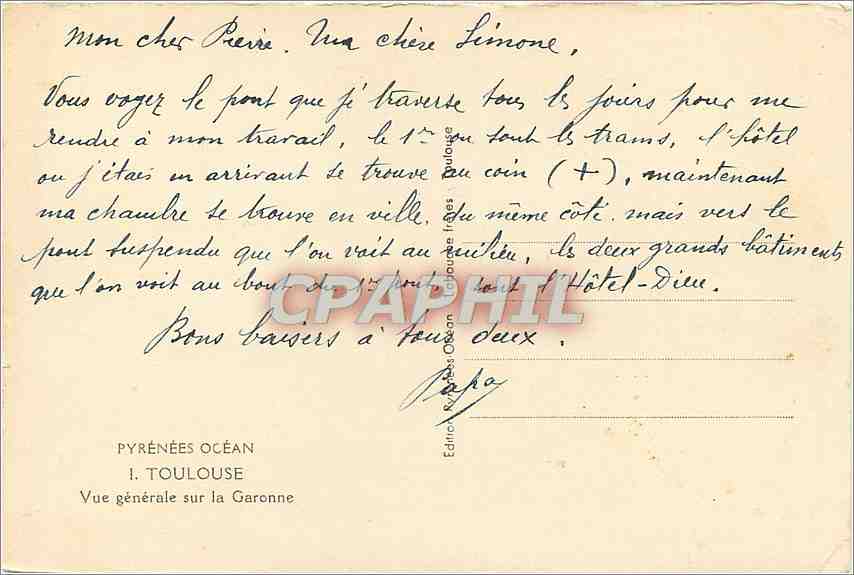 Mon cher Pierre. Ma chère Simone,
Vous voyez le pont que j'traverse tous les jours pour me
rendre à mon travail, le 1er ou sont les trams, l'hôtel
ou j'étais en arrivant se trouve au coin (+), maintenant
ma chambre se trouve en ville, du même côté, mais vers le
pont suspendu que l'on voit au milieu, les deux grands bâtiments
que l'on voit au bout du 1er pont, sont l'Hôtel-Dieu.
Bons baisers à tous deux.
Papa
CPAPHIL
PYRÉNÉES OCÉAN
1. TOULOUSE
Vue générale sur la Garonne
Edition Pyrénées Océan Labouche frères - Toulouse